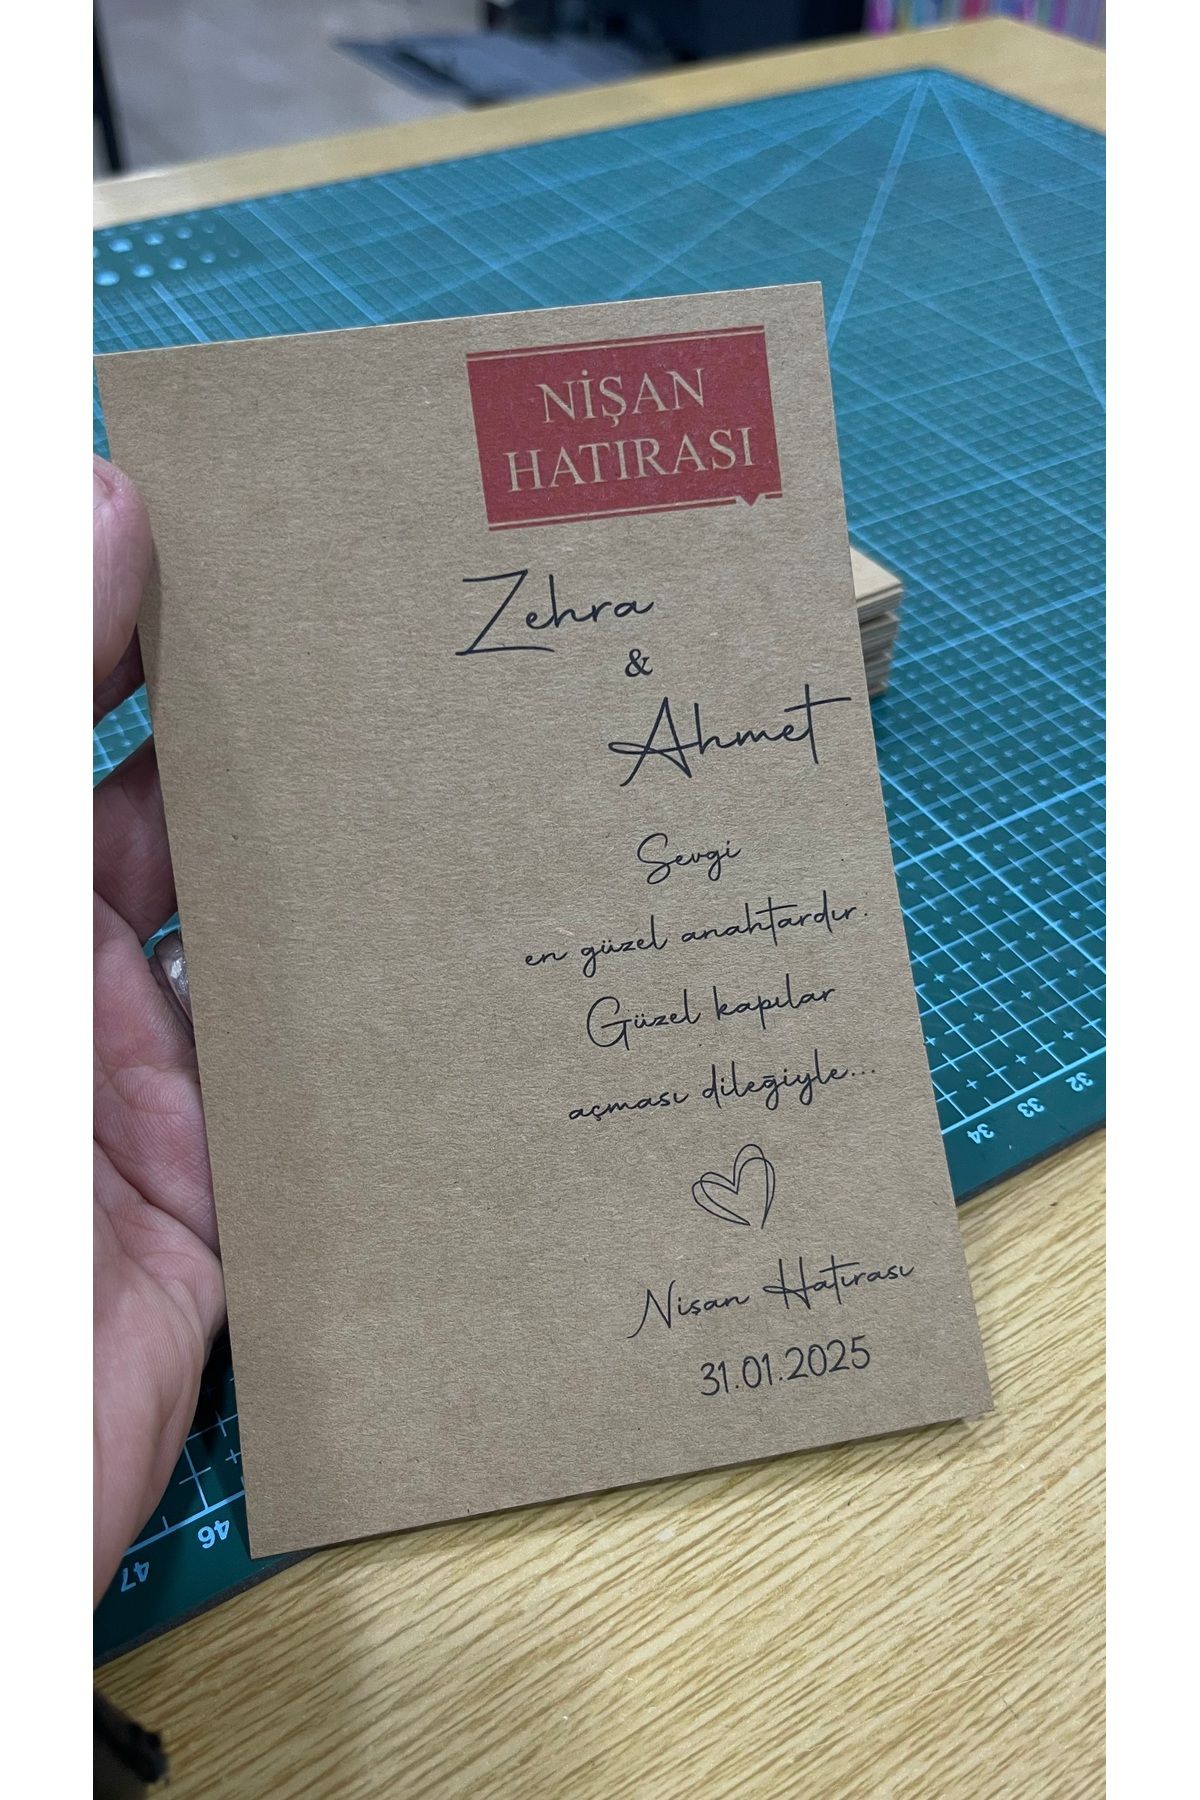 NİŞAN
HATIRASI
Zehra
&
Ahmet
Sevgi
en güzel anahtardır.
Güzel kapılar
açması dileğiyle...
Nişan Hatırası
31.01.2025
32
33
34
46
47